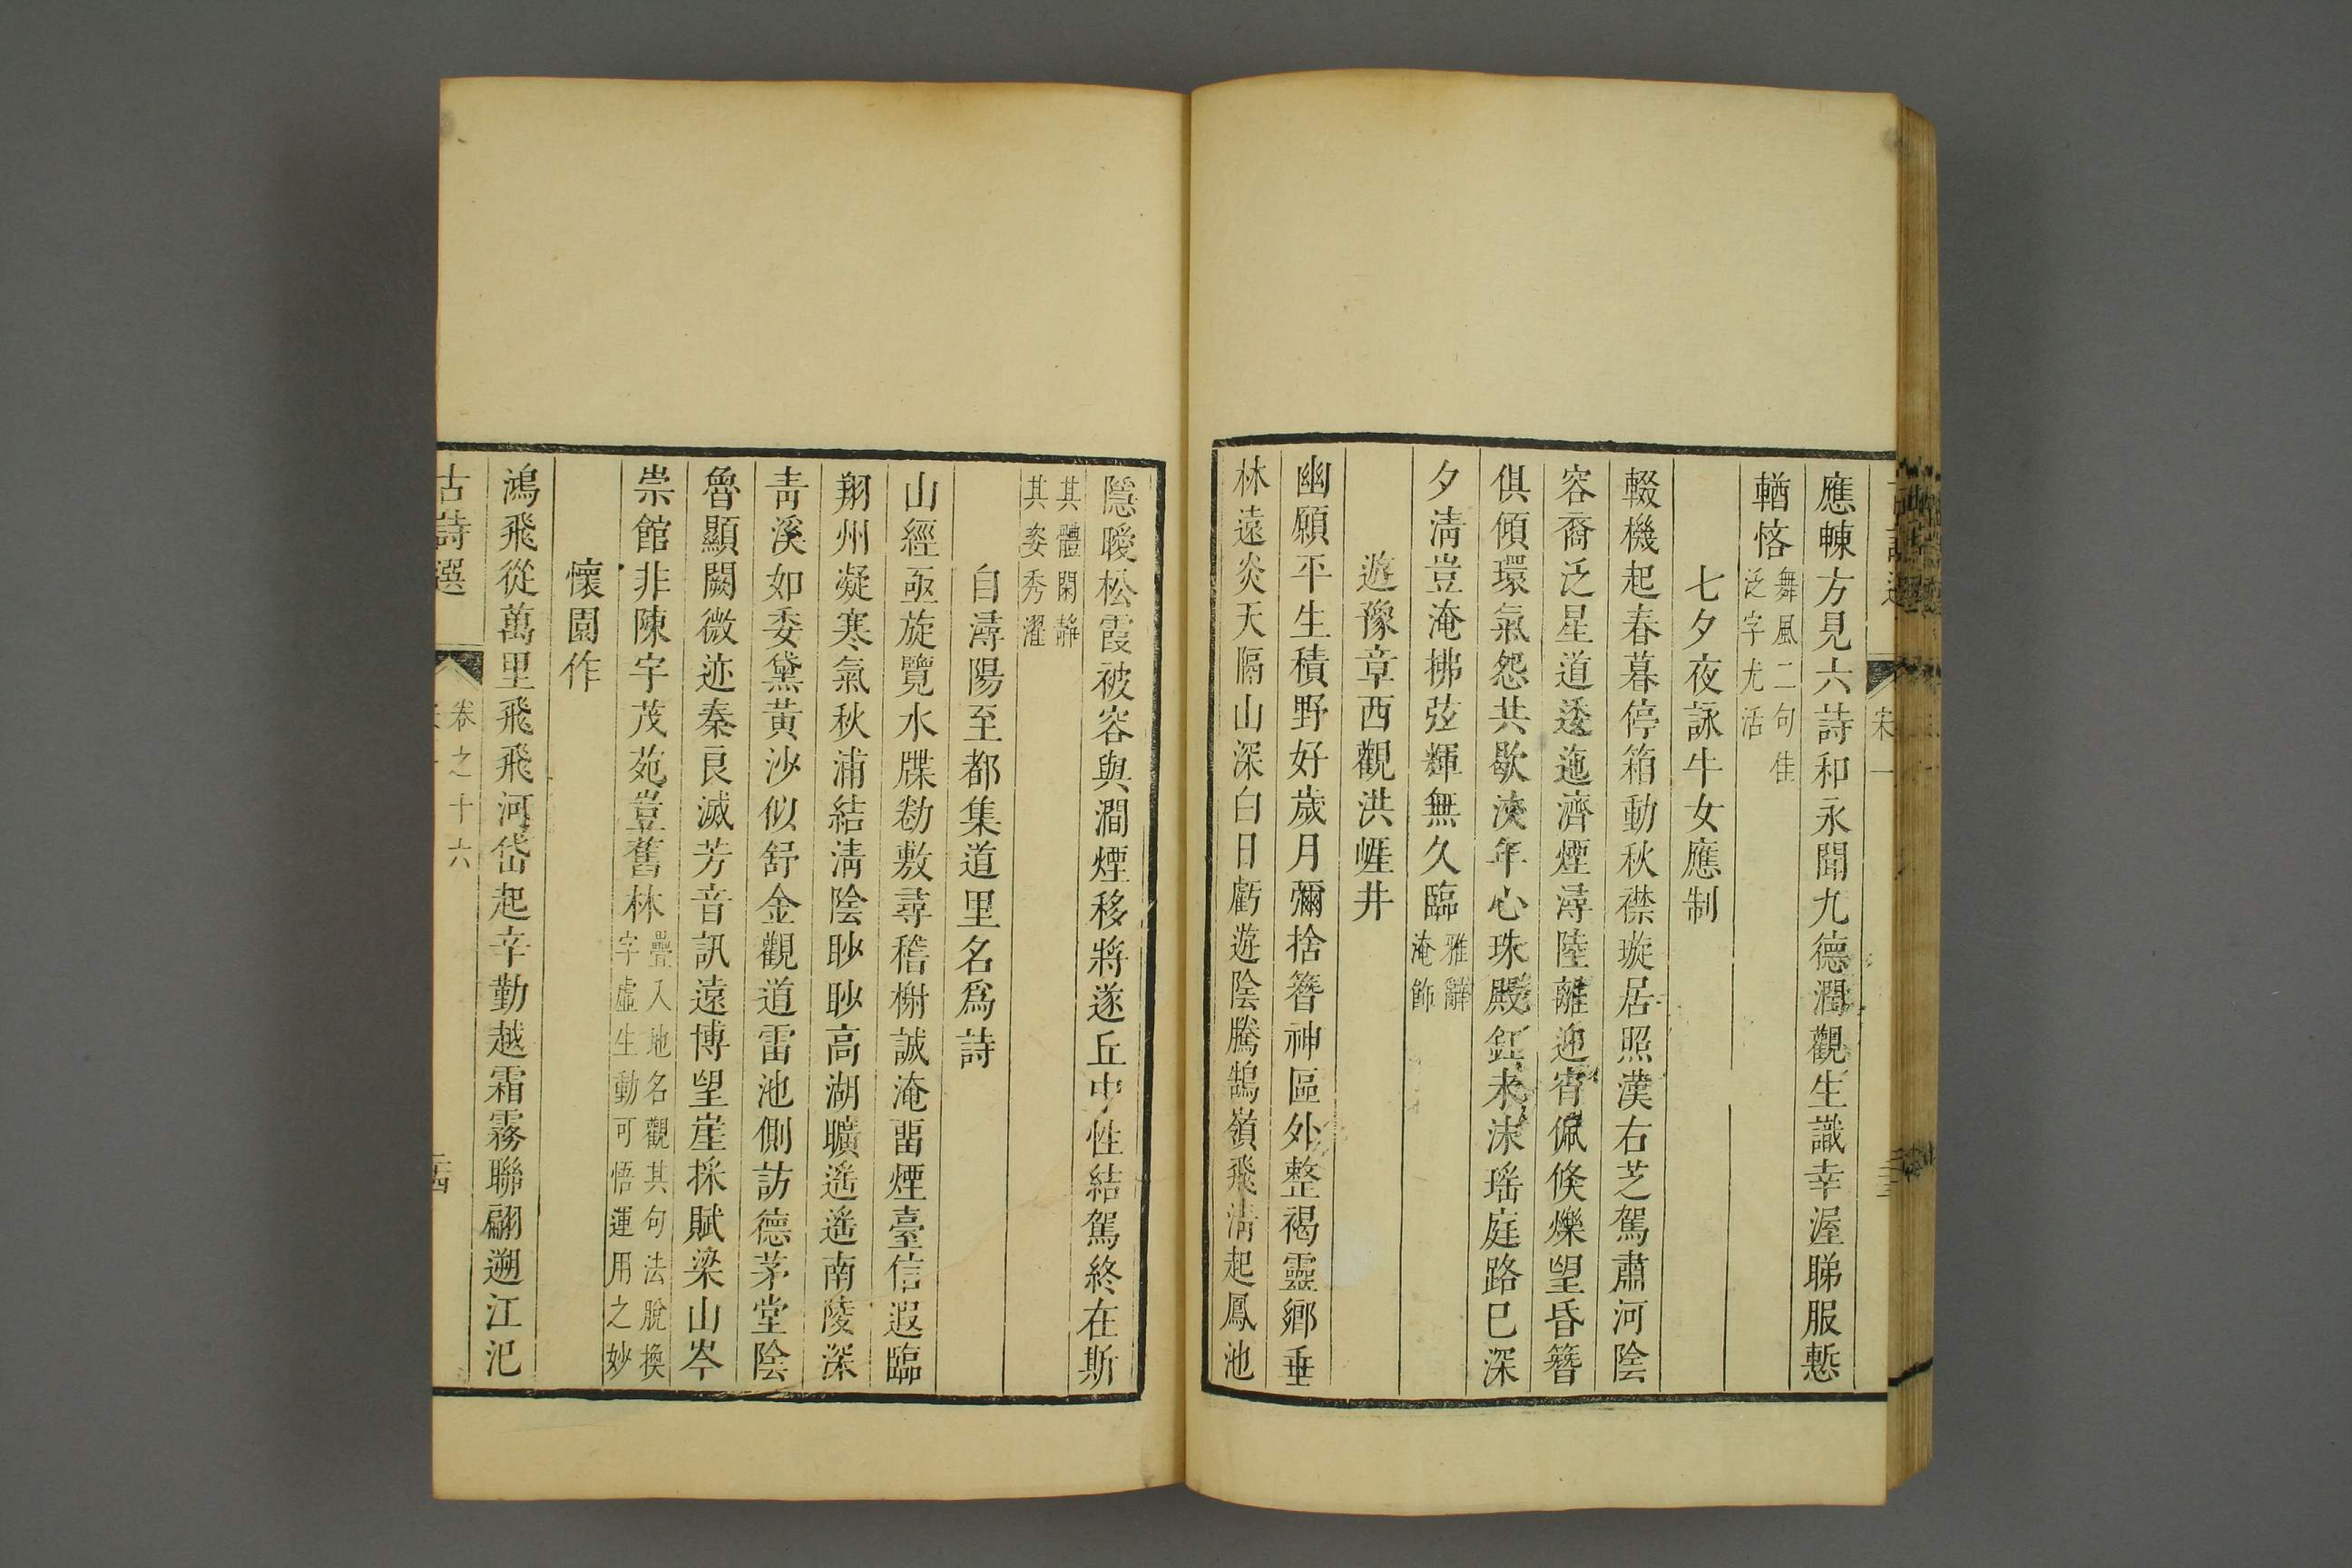 宋一
應朄方見六詩和永聞九德潤觀生識幸渥睇服慙
輶恪
舞風二句佳
泛字尤活
七夕夜詠牛女應制
輟機起春暮停箱動秋襟璇居照漢右芝駕肅河陰
容裔泛星道逶迤濟煙潯陸離迎宵佩倏爍望昏簪
俱傾環氣怨共歇浹年心珠殿釭未沫瑤庭路已深
夕淸豈淹拂弦輝無久臨
雅辭
淹飾
遊豫章西觀洪崖井
幽願平生積野好歲月彌捨簪神區外整褐靈鄉垂
林遠炎天隔山深白日虧遊陰騰鵠嶺飛淸起鳳池
隱曖松霞被容與澗煙移將遂丘中性結駕終在斯
其體閑靜
其姿秀濯
自潯陽至都集道里名爲詩
山經亟旋覽水牒勌敷尋稽榭誠淹畱煙臺信遐臨
翔州凝寒氣秋浦結淸陰眇眇高湖曠遙遙南陵深
靑溪如委黛黃沙似舒金觀道雷池側訪德茅堂陰
魯顯闕微迹秦良滅芳音訊遠博望崖採賦梁山岑
崇館非陳宇茂苑豈舊林
疊入地名觀其句法脫換
字虛生動可悟運用之妙
懷園作
鴻飛從萬里飛飛河岱起辛勤越霜霧聯翩遡江汜
古詩選
卷之十六